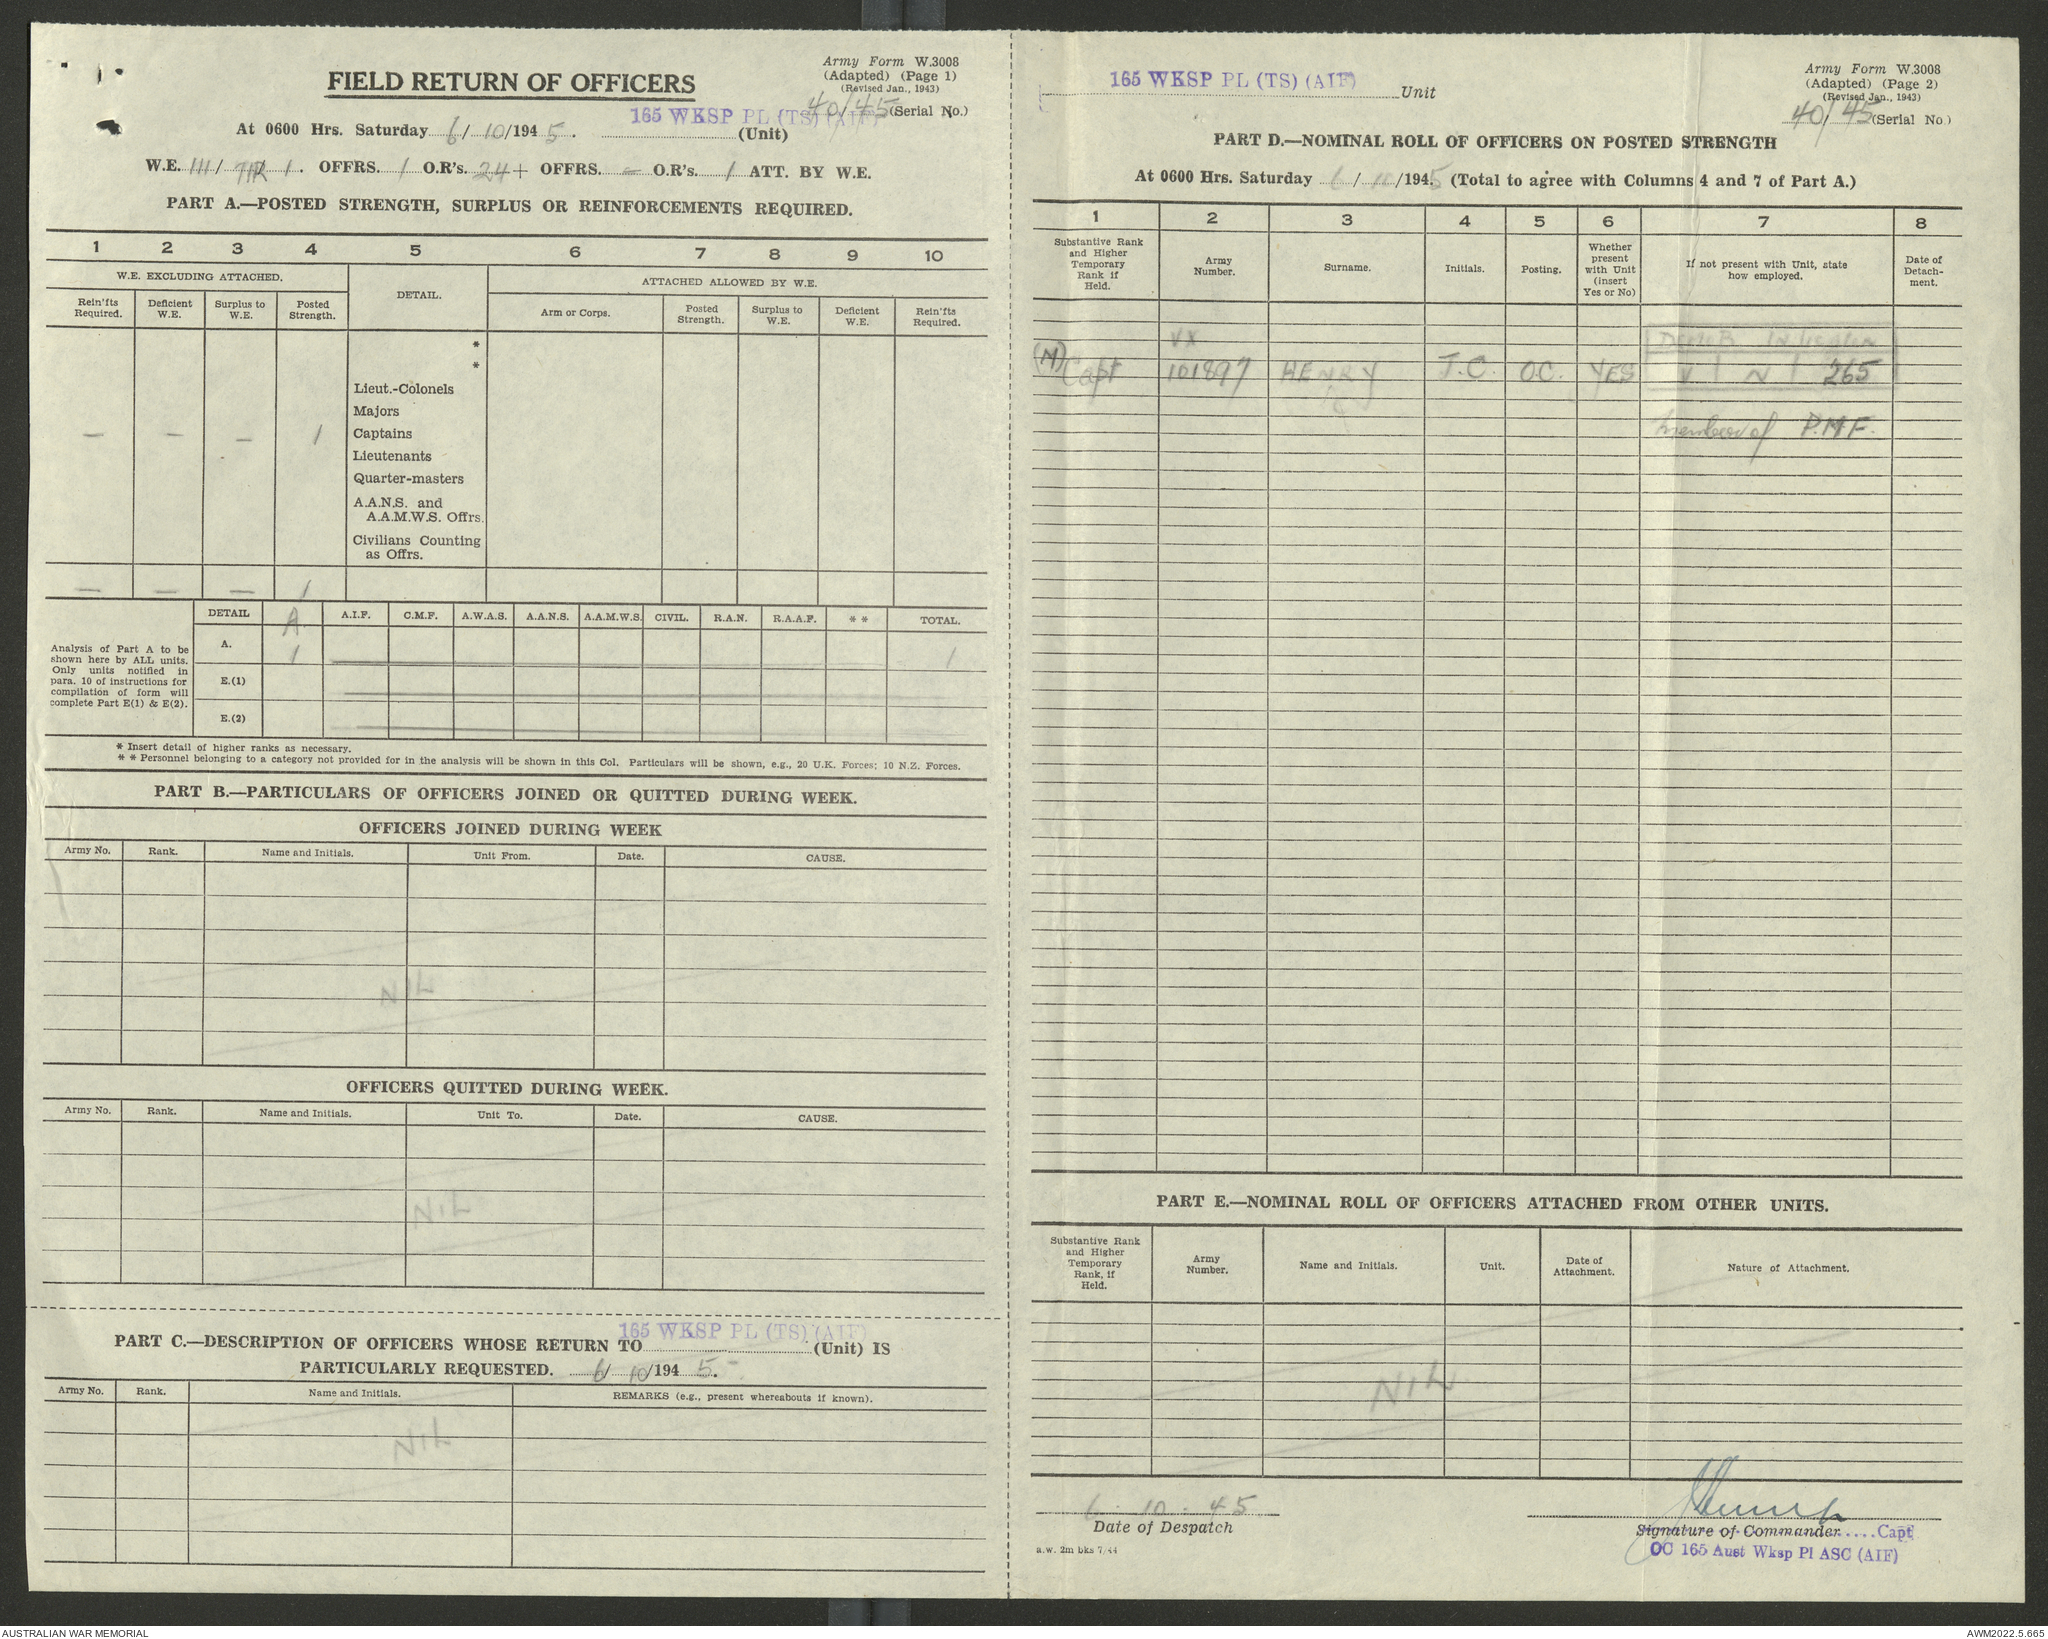 Army Form W.3008
(Adapted) (Page 1)
(Revised Jan., 1943)
FIELD RETURN OF OFFICERS
40/45 (Serial No.)
165 WKSP PL (TS) (AIF)
At 0600 Hrs. Saturday 6/10/1945. (Unit)
W.E. 111/ / 1. OFFRS. 1 O.R's. 24 + OFFRS. – O.R's. 1 ATT. BY W.E.
PART A.—POSTED STRENGTH, SURPLUS OR REINFORCEMENTS REQUIRED.
1 2 3 4 5 6 7 8 9 10
W.E. EXCLUDING ATTACHED. DETAIL. ATTACHED ALLOWED BY W.E.
Rein'fts Required. Deficient W.E. Surplus to W.E. Posted Strength. Arm or Corps. Posted Strength. Surplus to W.E. Deficient W.E. Rein'fts Required.
*
*
Lieut.-Colonels
Majors
— — — 1 Captains
Lieutenants
Quarter-masters
A.A.N.S. and
A.A.M.W.S. Offrs.
Civilians Counting
as Offrs.
— — — 1
DETAIL A A.I.F. C.M.F. A.W.A.S. A.A.N.S. A.A.M.W.S. CIVIL. R.A.N. R.A.A.F. * * TOTAL.
A. 1 1
E.(1)
E.(2)
Analysis of Part A to be
shown here by ALL units.
Only units notified in
para. 10 of instructions for
compilation of form will
complete Part E(1) & E(2).
* Insert detail of higher ranks as necessary.
* * Personnel belonging to a category not provided for in the analysis will be shown in this Col. Particulars will be shown, e.g., 20 U.K. Forces; 10 N.Z. Forces.
PART B.—PARTICULARS OF OFFICERS JOINED OR QUITTED DURING WEEK.
OFFICERS JOINED DURING WEEK
Army No. Rank. Name and Initials. Unit From. Date. CAUSE.
NIL
OFFICERS QUITTED DURING WEEK.
Army No. Rank. Name and Initials. Unit To. Date. CAUSE.
NIL
165 WKSP PL (TS) (AIF)
PART C.—DESCRIPTION OF OFFICERS WHOSE RETURN TO (Unit) IS
PARTICULARLY REQUESTED. 6/10/1945.
Army No. Rank. Name and Initials. REMARKS (e.g., present whereabouts if known).
NIL
165 WKSP PL (TS) (AIF) Unit
Army Form W.3008
(Adapted) (Page 2)
(Revised Jan., 1943)
40/45 (Serial No.)
PART D.—NOMINAL ROLL OF OFFICERS ON POSTED STRENGTH
At 0600 Hrs. Saturday 6/10/1945 (Total to agree with Columns 4 and 7 of Part A.)
1 2 3 4 5 6 7 8
Substantive Rank and Higher Temporary Rank if Held. Army Number. Surname. Initials. Posting. Whether present with Unit (insert Yes or No) If not present with Unit, state how employed. Date of Detach-ment.
VX
(M) Capt 101897 HENRY J.C. O.C. YES V N 265
member of P.M.F.
PART E.—NOMINAL ROLL OF OFFICERS ATTACHED FROM OTHER UNITS.
Substantive Rank and Higher Temporary Rank, if Held. Army Number. Name and Initials. Unit. Date of Attachment. Nature of Attachment.
NIL
6. 10. 45
Date of Despatch
Signature of Commander Capt
OC 165 Aust Wksp Pl ASC (AIF)
a.w. 2m bks 7/44
AUSTRALIAN WAR MEMORIAL
AWM2022.5.665